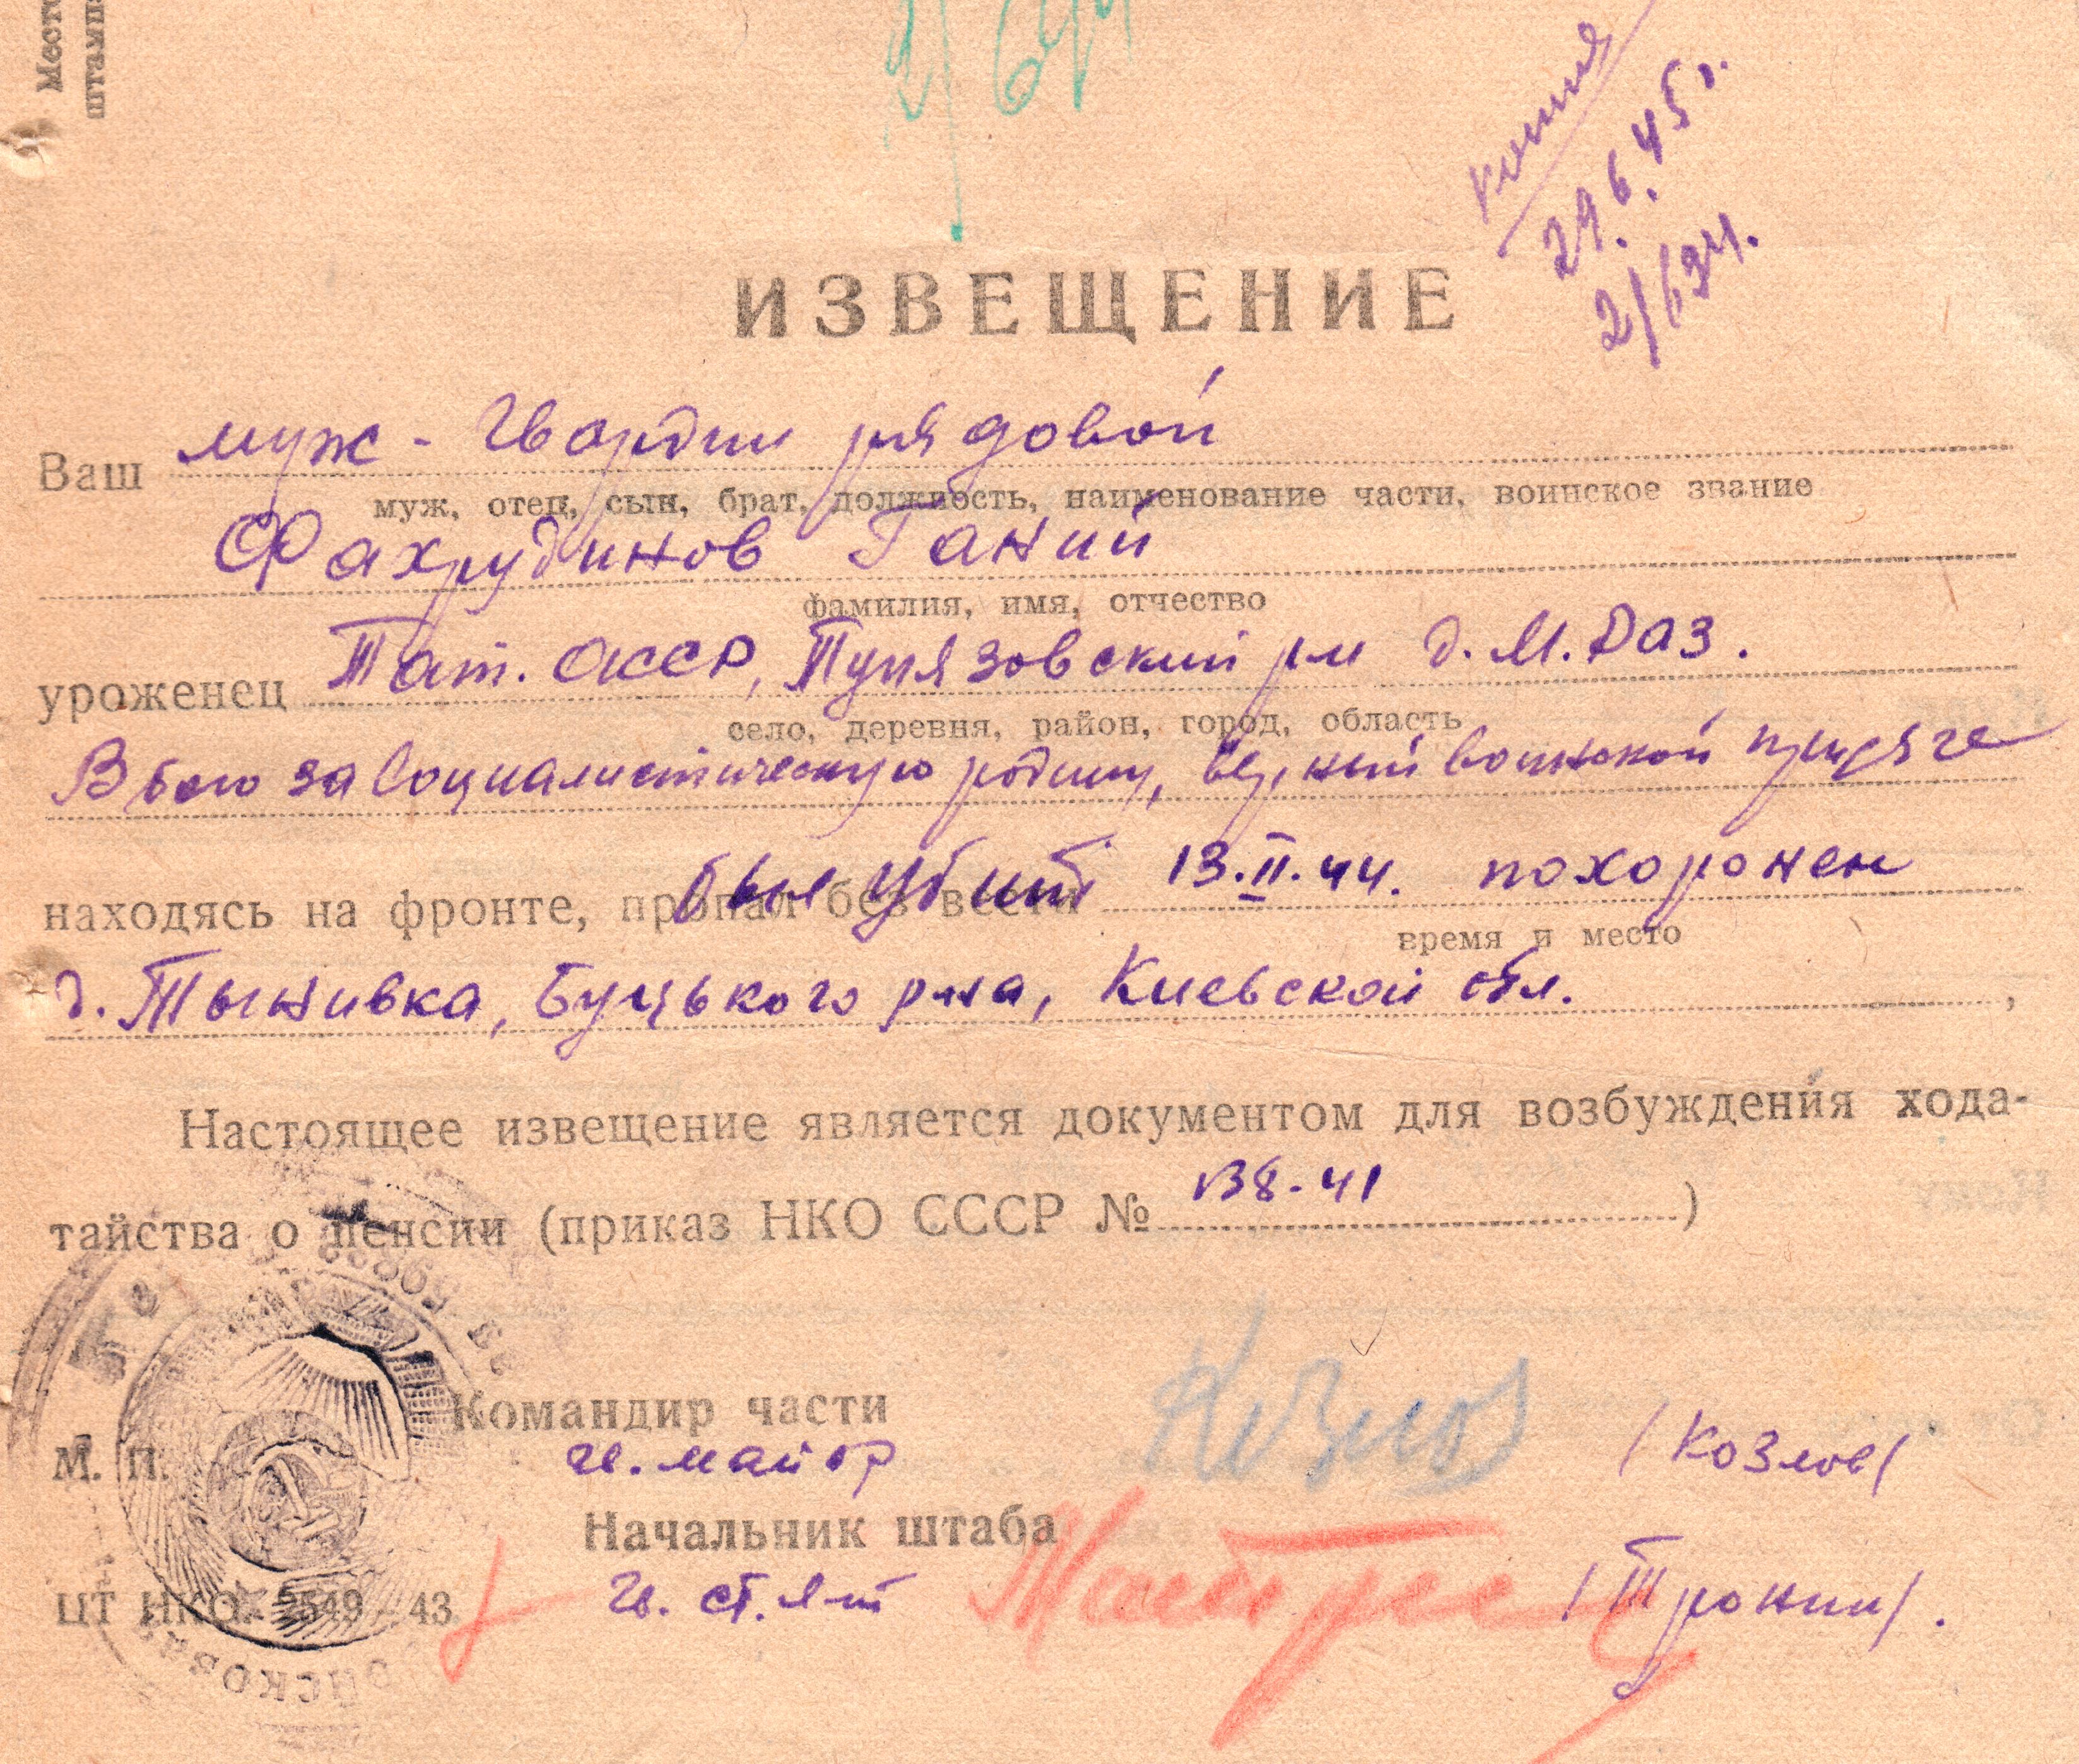 Место
штамп
2/64
копия
29.6.45г.
2/634.
ИЗВЕЩЕНИЕ
Ваш муж - гвардии рядовой
муж, отец, сын, брат, должность, наименование части, воинское звание
Фахрудинов Ганий
фамилия, имя, отчество
уроженец Тат. АССР, Тунязовский рн д. М. Даз.
село, деревня, район, город, область
В бою за социалистическую родину, верный воинской присяге
находясь на фронте, пропал без вести был убит 13.II.44. похоронен
время и место
д. Тынивка, Буцького р-на, Киевской обл.,
Настоящее извещение является документом для возбуждения хода-
тайства о пенсии (приказ НКО СССР № 138-41)
Командир части
М. П. гв. майор Козлов /Козлов/
Начальник штаба
ЦТ НКО 2549-43 гв. ст. л-т /Тронин/.